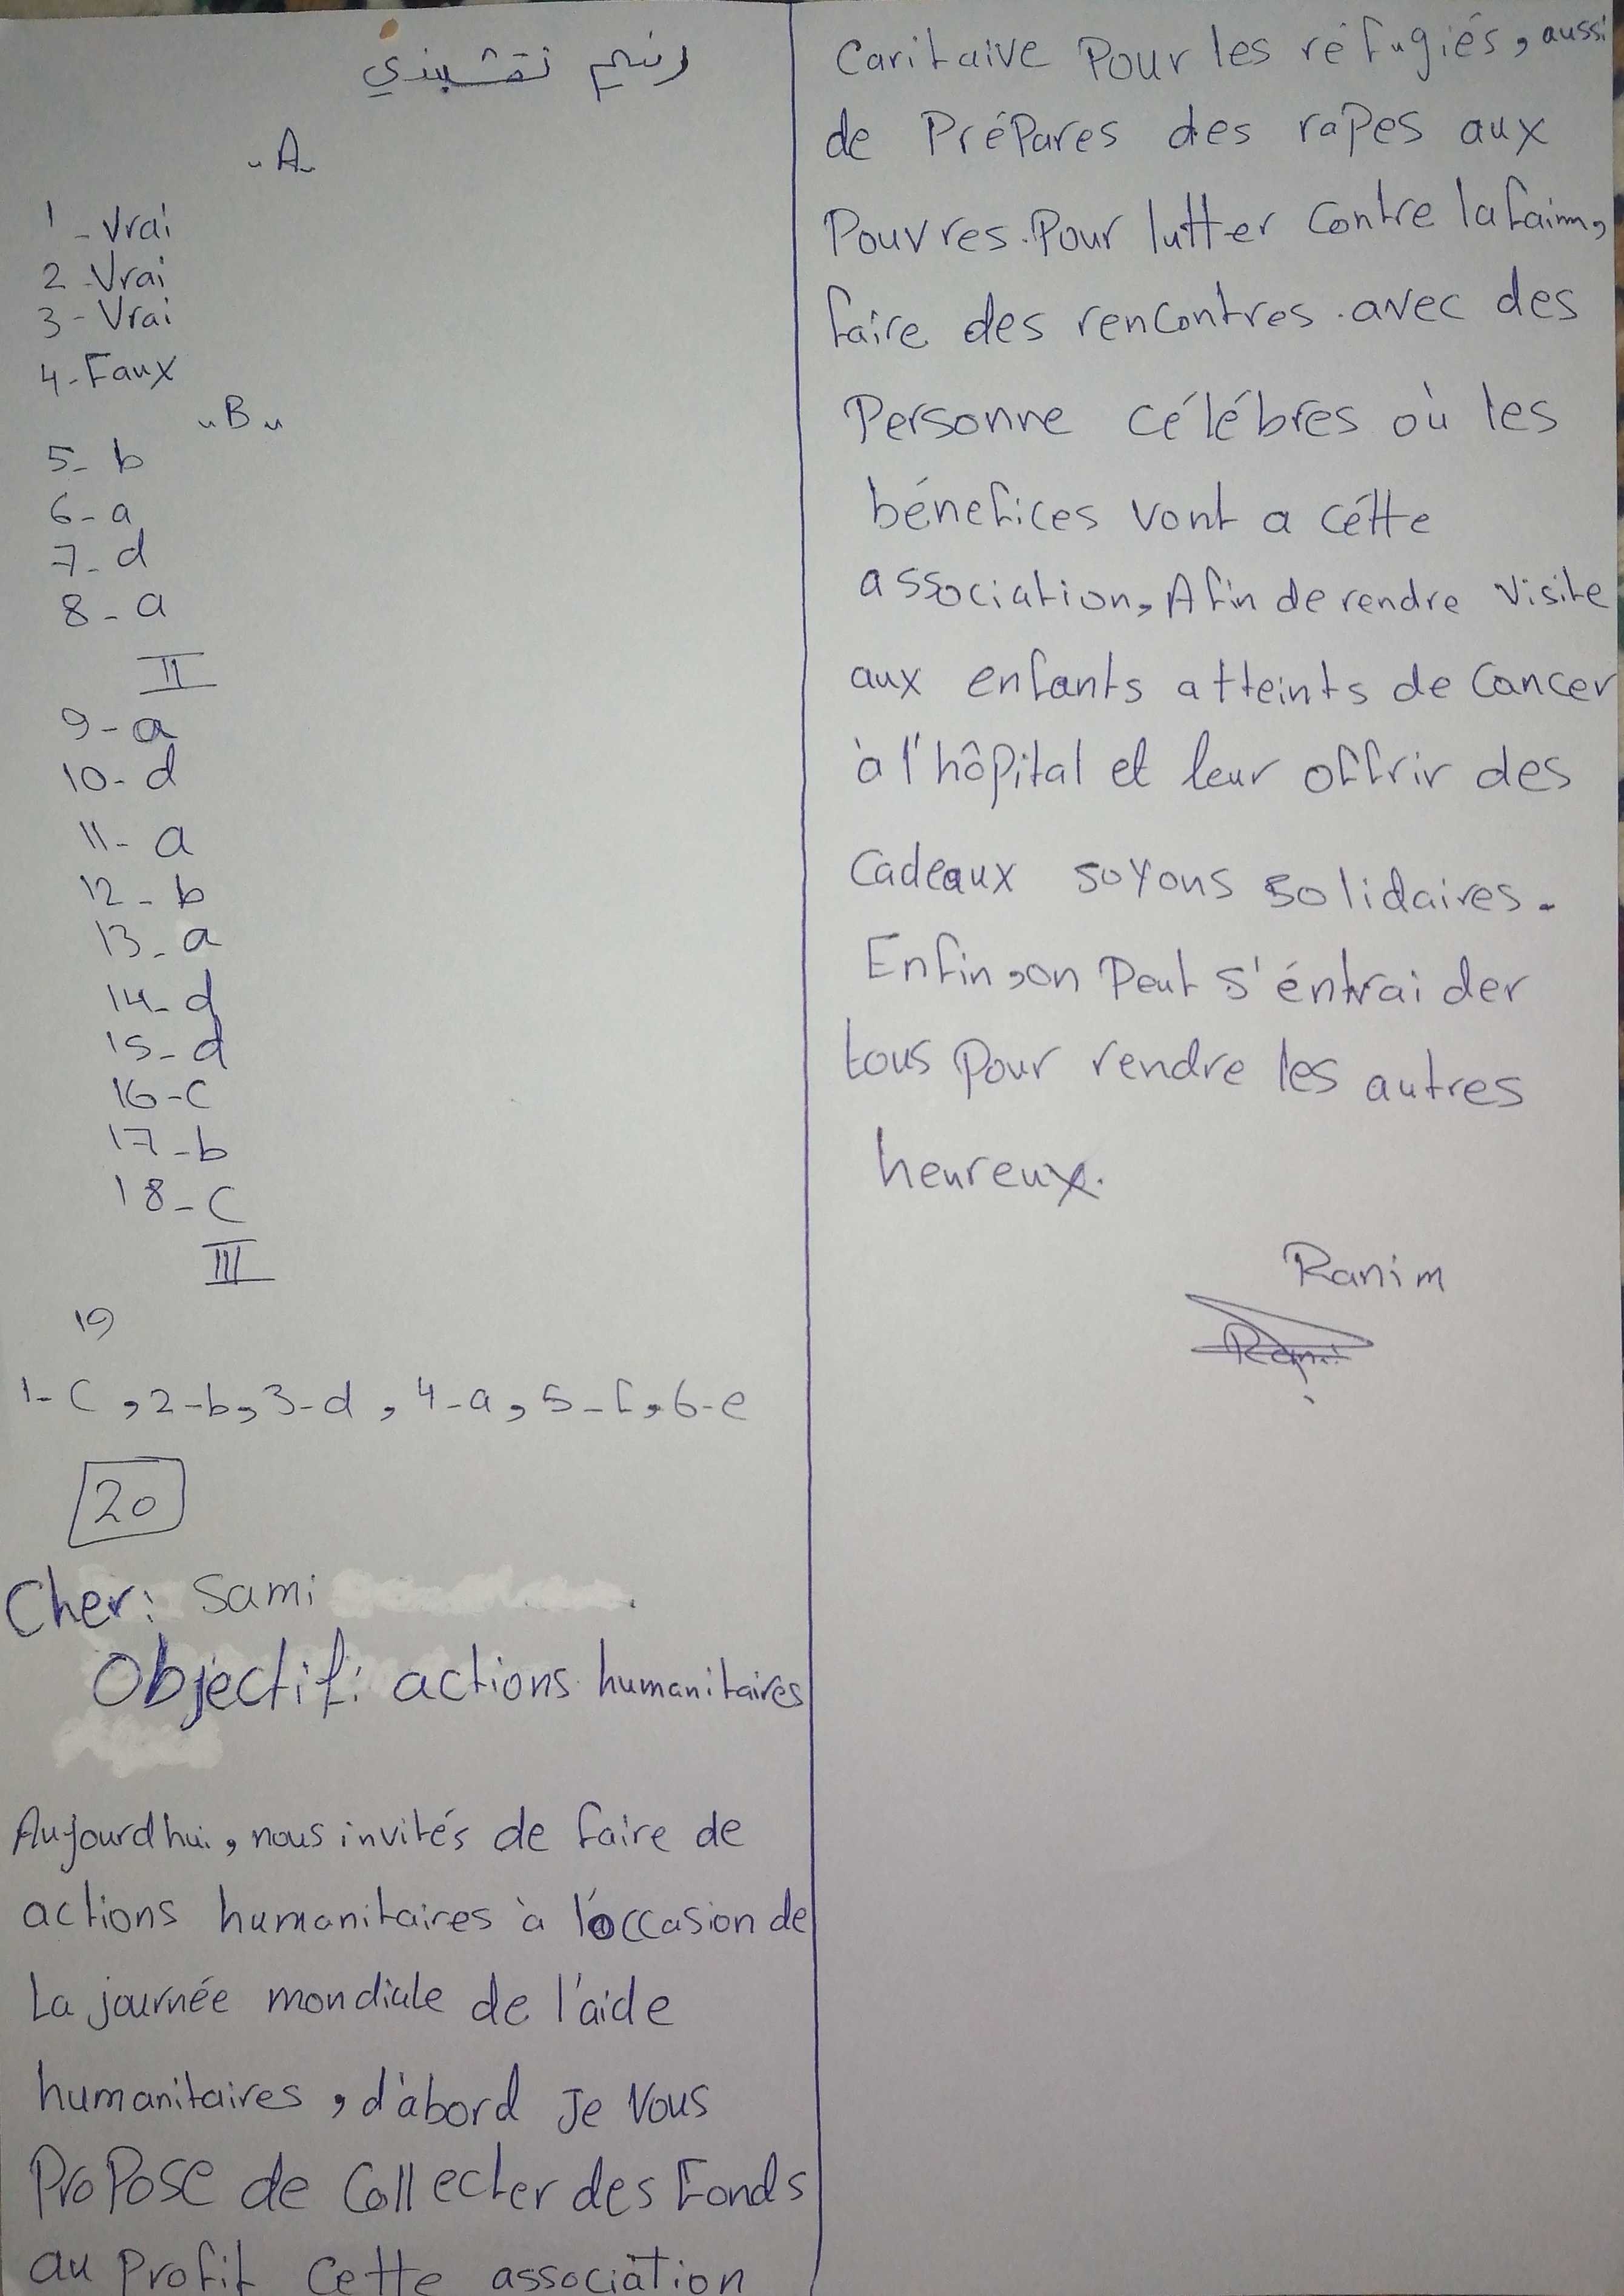 رنيم نقشبندي
-A-
1 - Vrai
2 - Vrai
3 - Vrai
4 - Faux
"B"
5 - b
6 - a
7 - d
8 - a
II
9 - a
10 - d
11 - a
12 - b
13 - a
14 - d
15 - d
16 - c
17 - b
18 - c
III
19
1 - C , 2 - b , 3 - d , 4 - a , 5 - f , 6 - e
20
Cher: Sami
Objectif: actions humanitaires
Aujourd'hui, nous invités de faire de
actions humanitaires à l'occasion de
La journée mondiale de l'aide
humanitaires , d'abord Je Vous
ProPose de Collecter des Fonds
au Profit Cette association
Caritaive Pour les réfugiés, aussi
de PréPares des rapes aux
Pouvres. Pour lutter Contre la faim,
faire des rencontres. avec des
Personne célébres où les
bénefices vont a cétte
association, Afin de rendre Visite
aux enfants atteints de Cancer
à l'hôpital et leur offrir des
Cadeaux soyons solidaires.
Enfin, on Peut s'éntraider
tous Pour rendre les autres
heureux.
Ranim